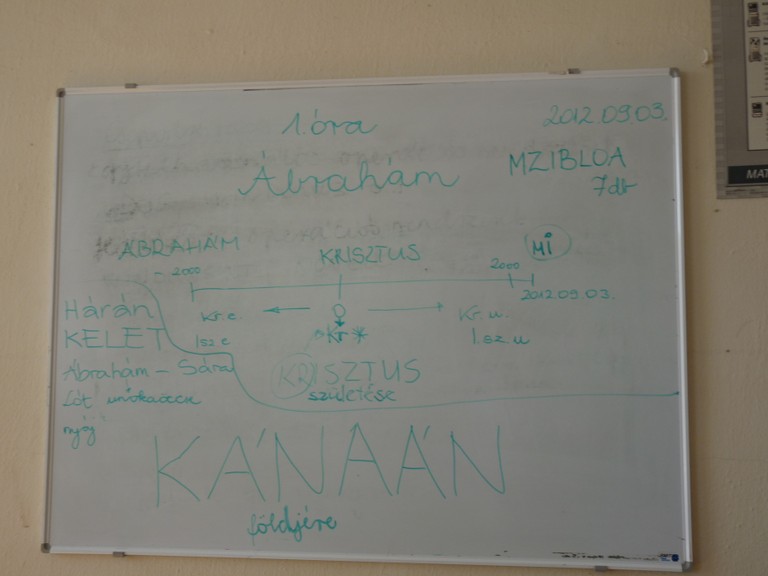 1. óra
2012.09.03.
Ábrahám
MZIBLOA
7 db
ÁBRAHÁM
KRISZTUS
MI
- 2000
2000
2012.09.03.
Kr. e.
Kr. u.
I.sz. e
Kr *
I.sz. u
Hárán
KELET
Ábrahám - Sára
KRISZTUS
születése
Lót unokaöccse
nyáj
KÁNAÁN
földjére
MAT